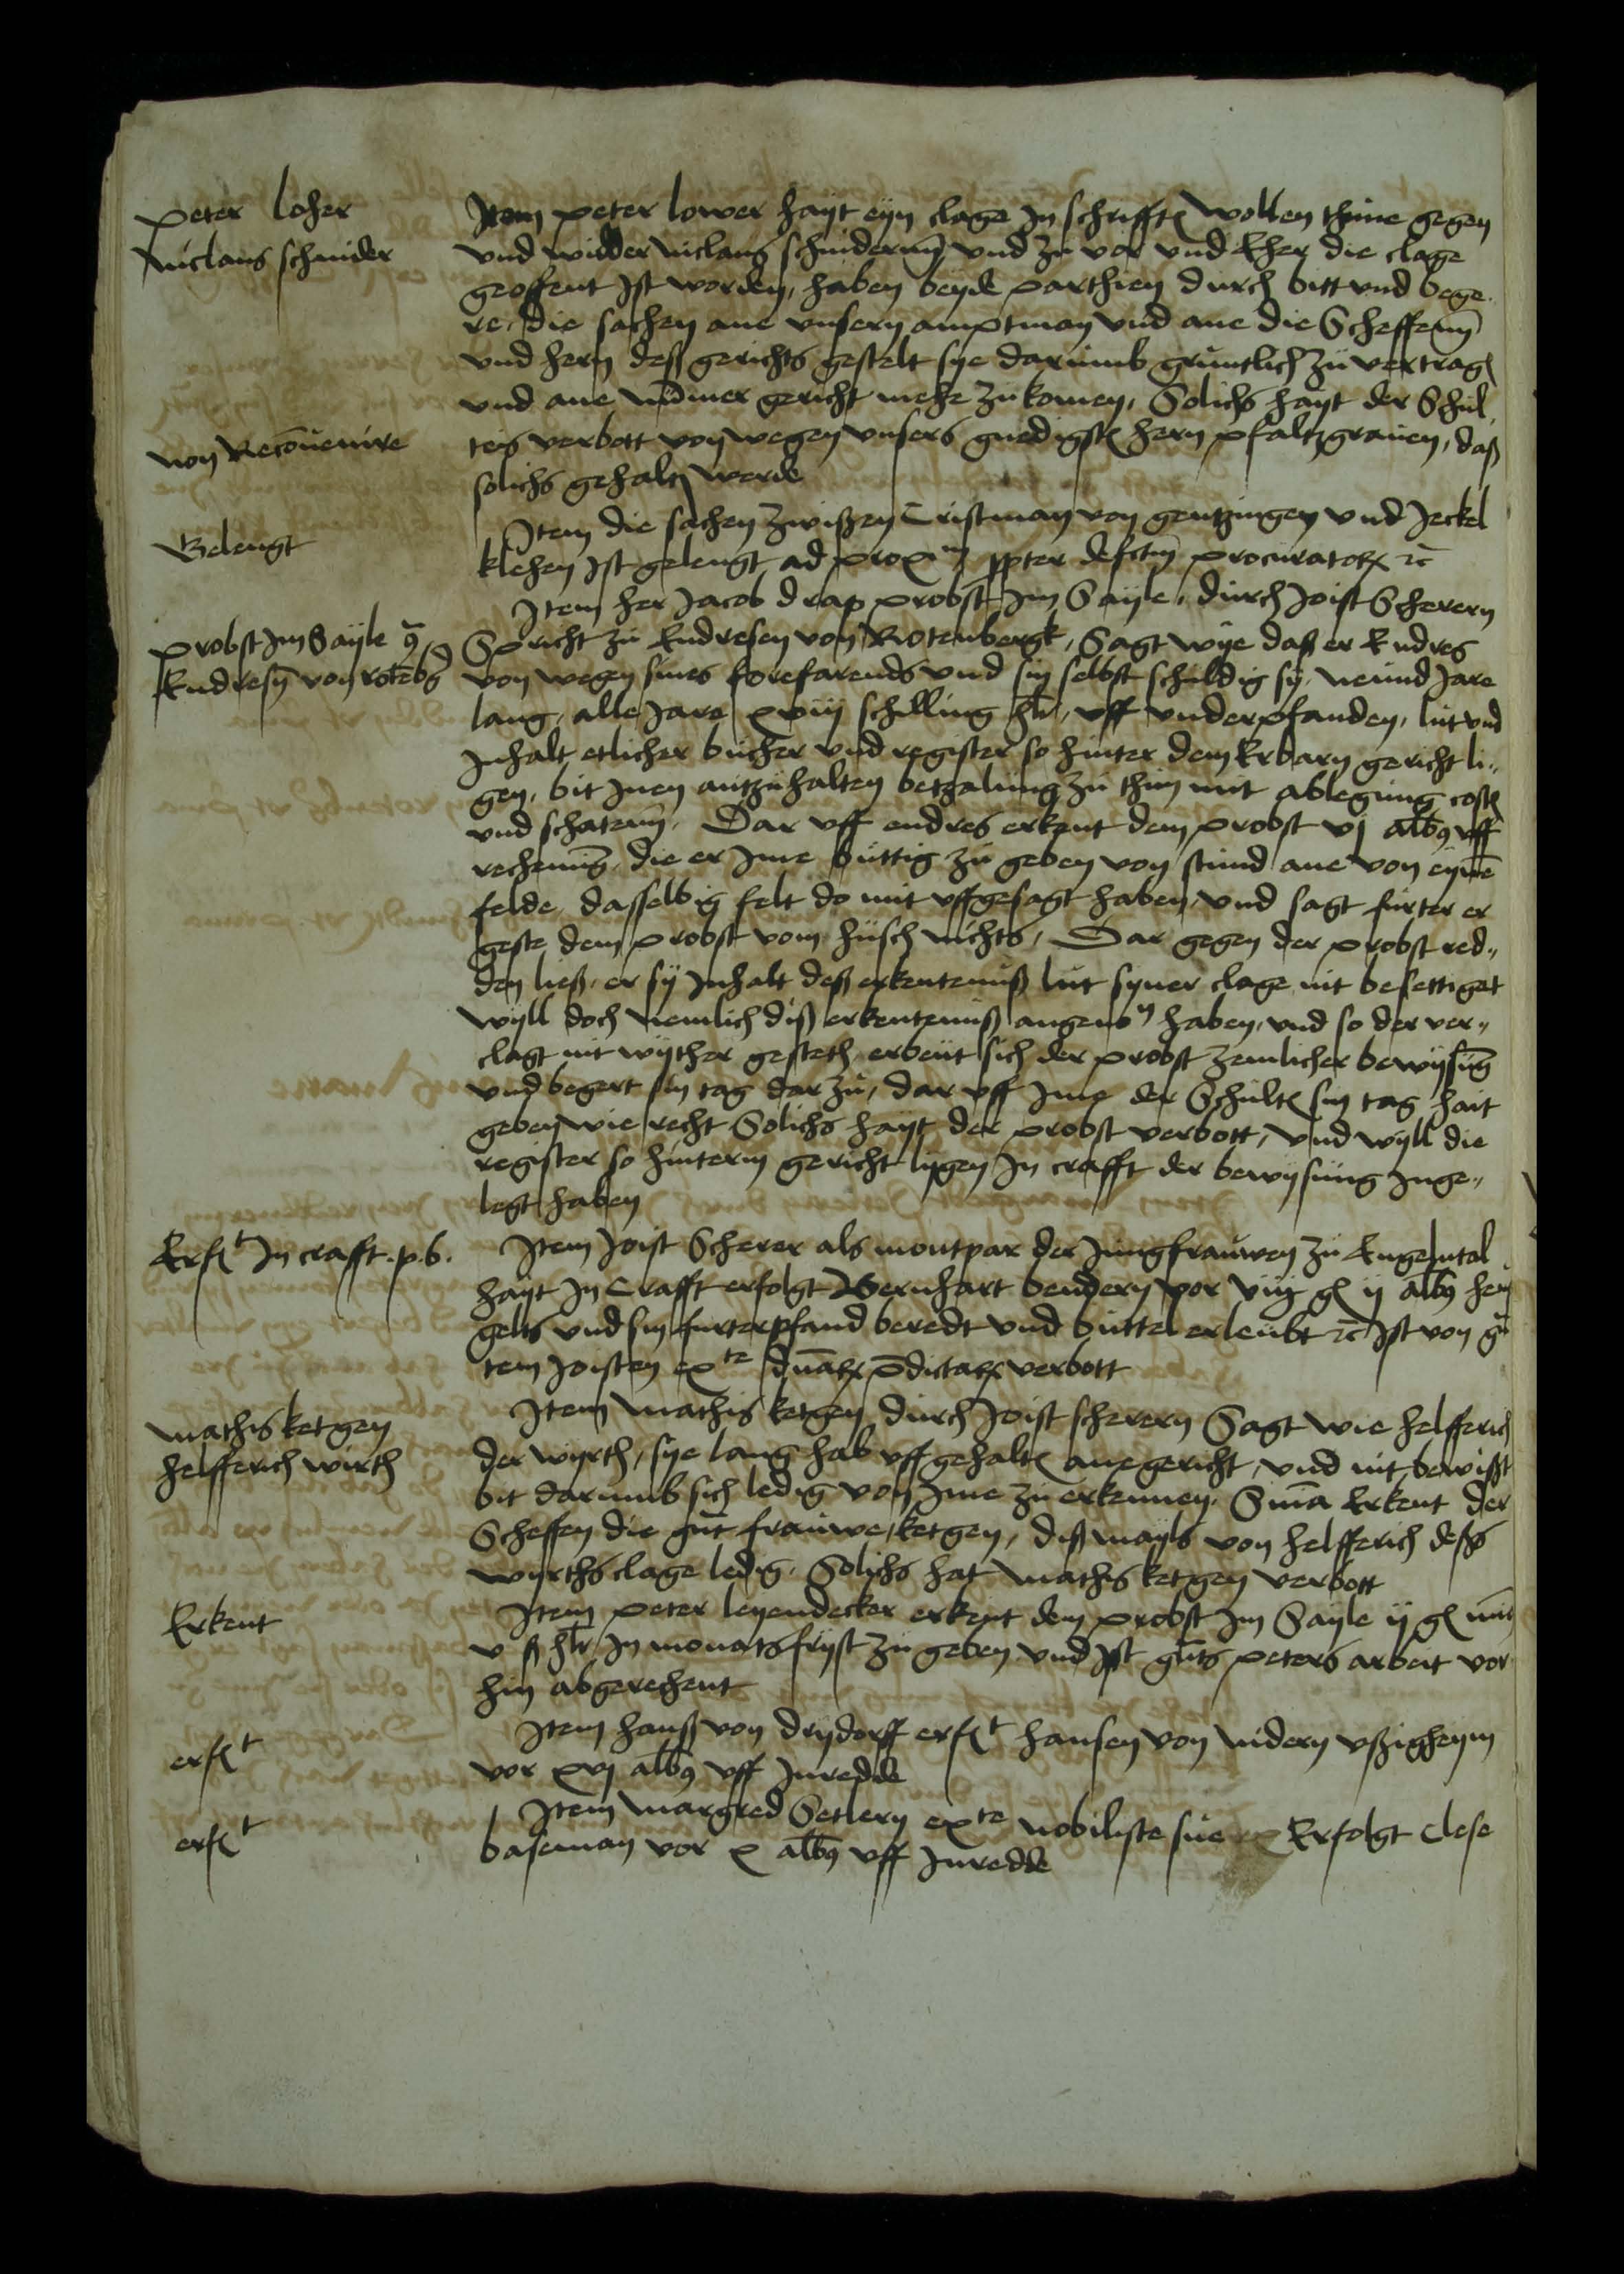 Peter Loher
Niclaus schnider
Item peter lower hayt eyn clage in schrifften wollen thune gegen
und widder niclaus schnidern und zu vor und Eher die clage
geoffent ist worden, haben beyde parthien durch bitt und bege
re, die sachen ane unsern amptman und ane die Scheffenn
und hern deß gerichts gestelt sye darumb gruntlich zu vertragen
und ane nummer gericht mehe zukomen, Solichs hayt der Schul
non Reconvenire
teis verbott von wegen unsers gnedigsten hern pfaltzgraven, daß
solichs gehalten werde
Gelengt
Item die sachen zwißen Cristman von gentzingen und Jeckel
klehen ist gelengt ad proxm propter defctm procurator rc
Item her Jacob drap probst im Sayle, durch Joist Scherern
probst im Sayle
Endresen von rotebg
Spricht zu Endresen von Rotenbergk, Sagt wye daß er Endres
von wegen sines forefarends und sin selbst schuldig sy, neund Jare
lang, alle Jare xviij schilling hlr, uff underpfanden, lut und
Inhalt etlicher bucher und register so hinter dem Erbarn gericht li,,
gen, bit Inen antzuhalten betzalung zu thun mit ablegung costen
und schatenn, Dar uff endres erkent dem probst vj albus uff
rechenung, die er Ime buttig zu geben von stund ane von eyne
felde, dasselbig felt do mit uffgesagt haben, und sagt furter er
geste dem probst vom husch nichts, Dar gegen der probst red,,
den ließ, er sy Inhalt deß erkentenuß lut syner clage nit besettiget
wyll doch nemlich diß erkentenuß angenom haben, und so der ver,,
clagt nit wyther gesteth, erbeut sich der probst zemlicher bewysung
und begert sin tag dar zu, dar uff Ime der Schulten sin tag hait
geben wie recht Solichs hayt der probst verbott, und wyll die
register so hinterm gericht lygen In crafft der bewysung Inge,,
legt haben
Erft In crafft .p.b.
Item Joist Scherer als montpar der Jungfrauwen zu Engelntal
hayt In Crafft erfolgt Bernhart bendern vor viij gl ij albus hen
gelts und sin furter pfand beredt und buttel erleubt rc Ist von gu
tem Joisten exte duar predictar verbott
mathis ketgen
helfferich wirth
Item mathis ketgen durch Joist scherern Sagt wie helfferich
der wyrth, sye lang hab uff gehalten ane gericht, und nit bewißt
bit darumb sich ledig von Ime zu erkennen, Suma Erkent der
Scheffen die gut frauwe, ketgen, diß mayls von helfferich deßs
wyrths clage ledig, Solichs hat mathis ketgen verbott
Erkent
Item peter leyendecker erkent dem probst im Sayle ij gl mit
v ß hlr In monats fryst zu geben und Ist guts peters arbeit vor
hin abgerechent
erft
Item hanß von drydorff erft hansen von nidern ußigheym
vor xvj albus uff Inredde
erft
Item margred Setlern exte nobiliste sue Erfolgt Clese
baseman vor x albus uff Inredde